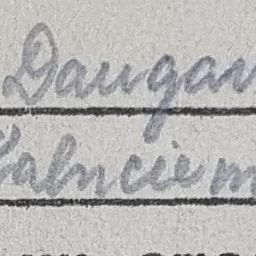 Daugav
Kalnciem